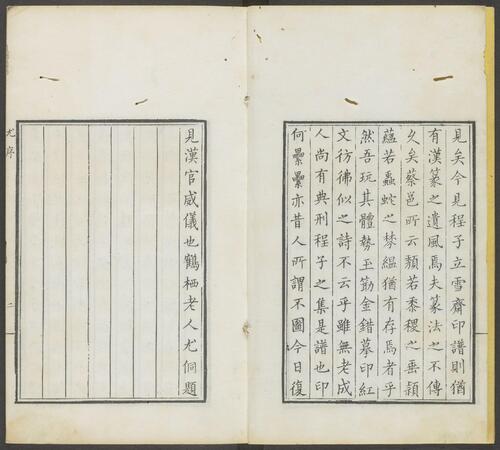 見矣今見程子立雪齋印譜則猶
有漢篆之遺風焉夫篆法之不傳
久矣蔡邕所云頹若黍稷之垂穎
蘊若蟲蛇之棼緼猶有存焉者乎
然吾玩其體勢玉筯金錯摹印紅
文彷彿似之詩不云乎雖無老成
人尚有典刑程子之集是譜也印
何纍纍亦昔人所謂不圖今日復
見漢官威儀也鶴栖老人尤侗題
尤序
二